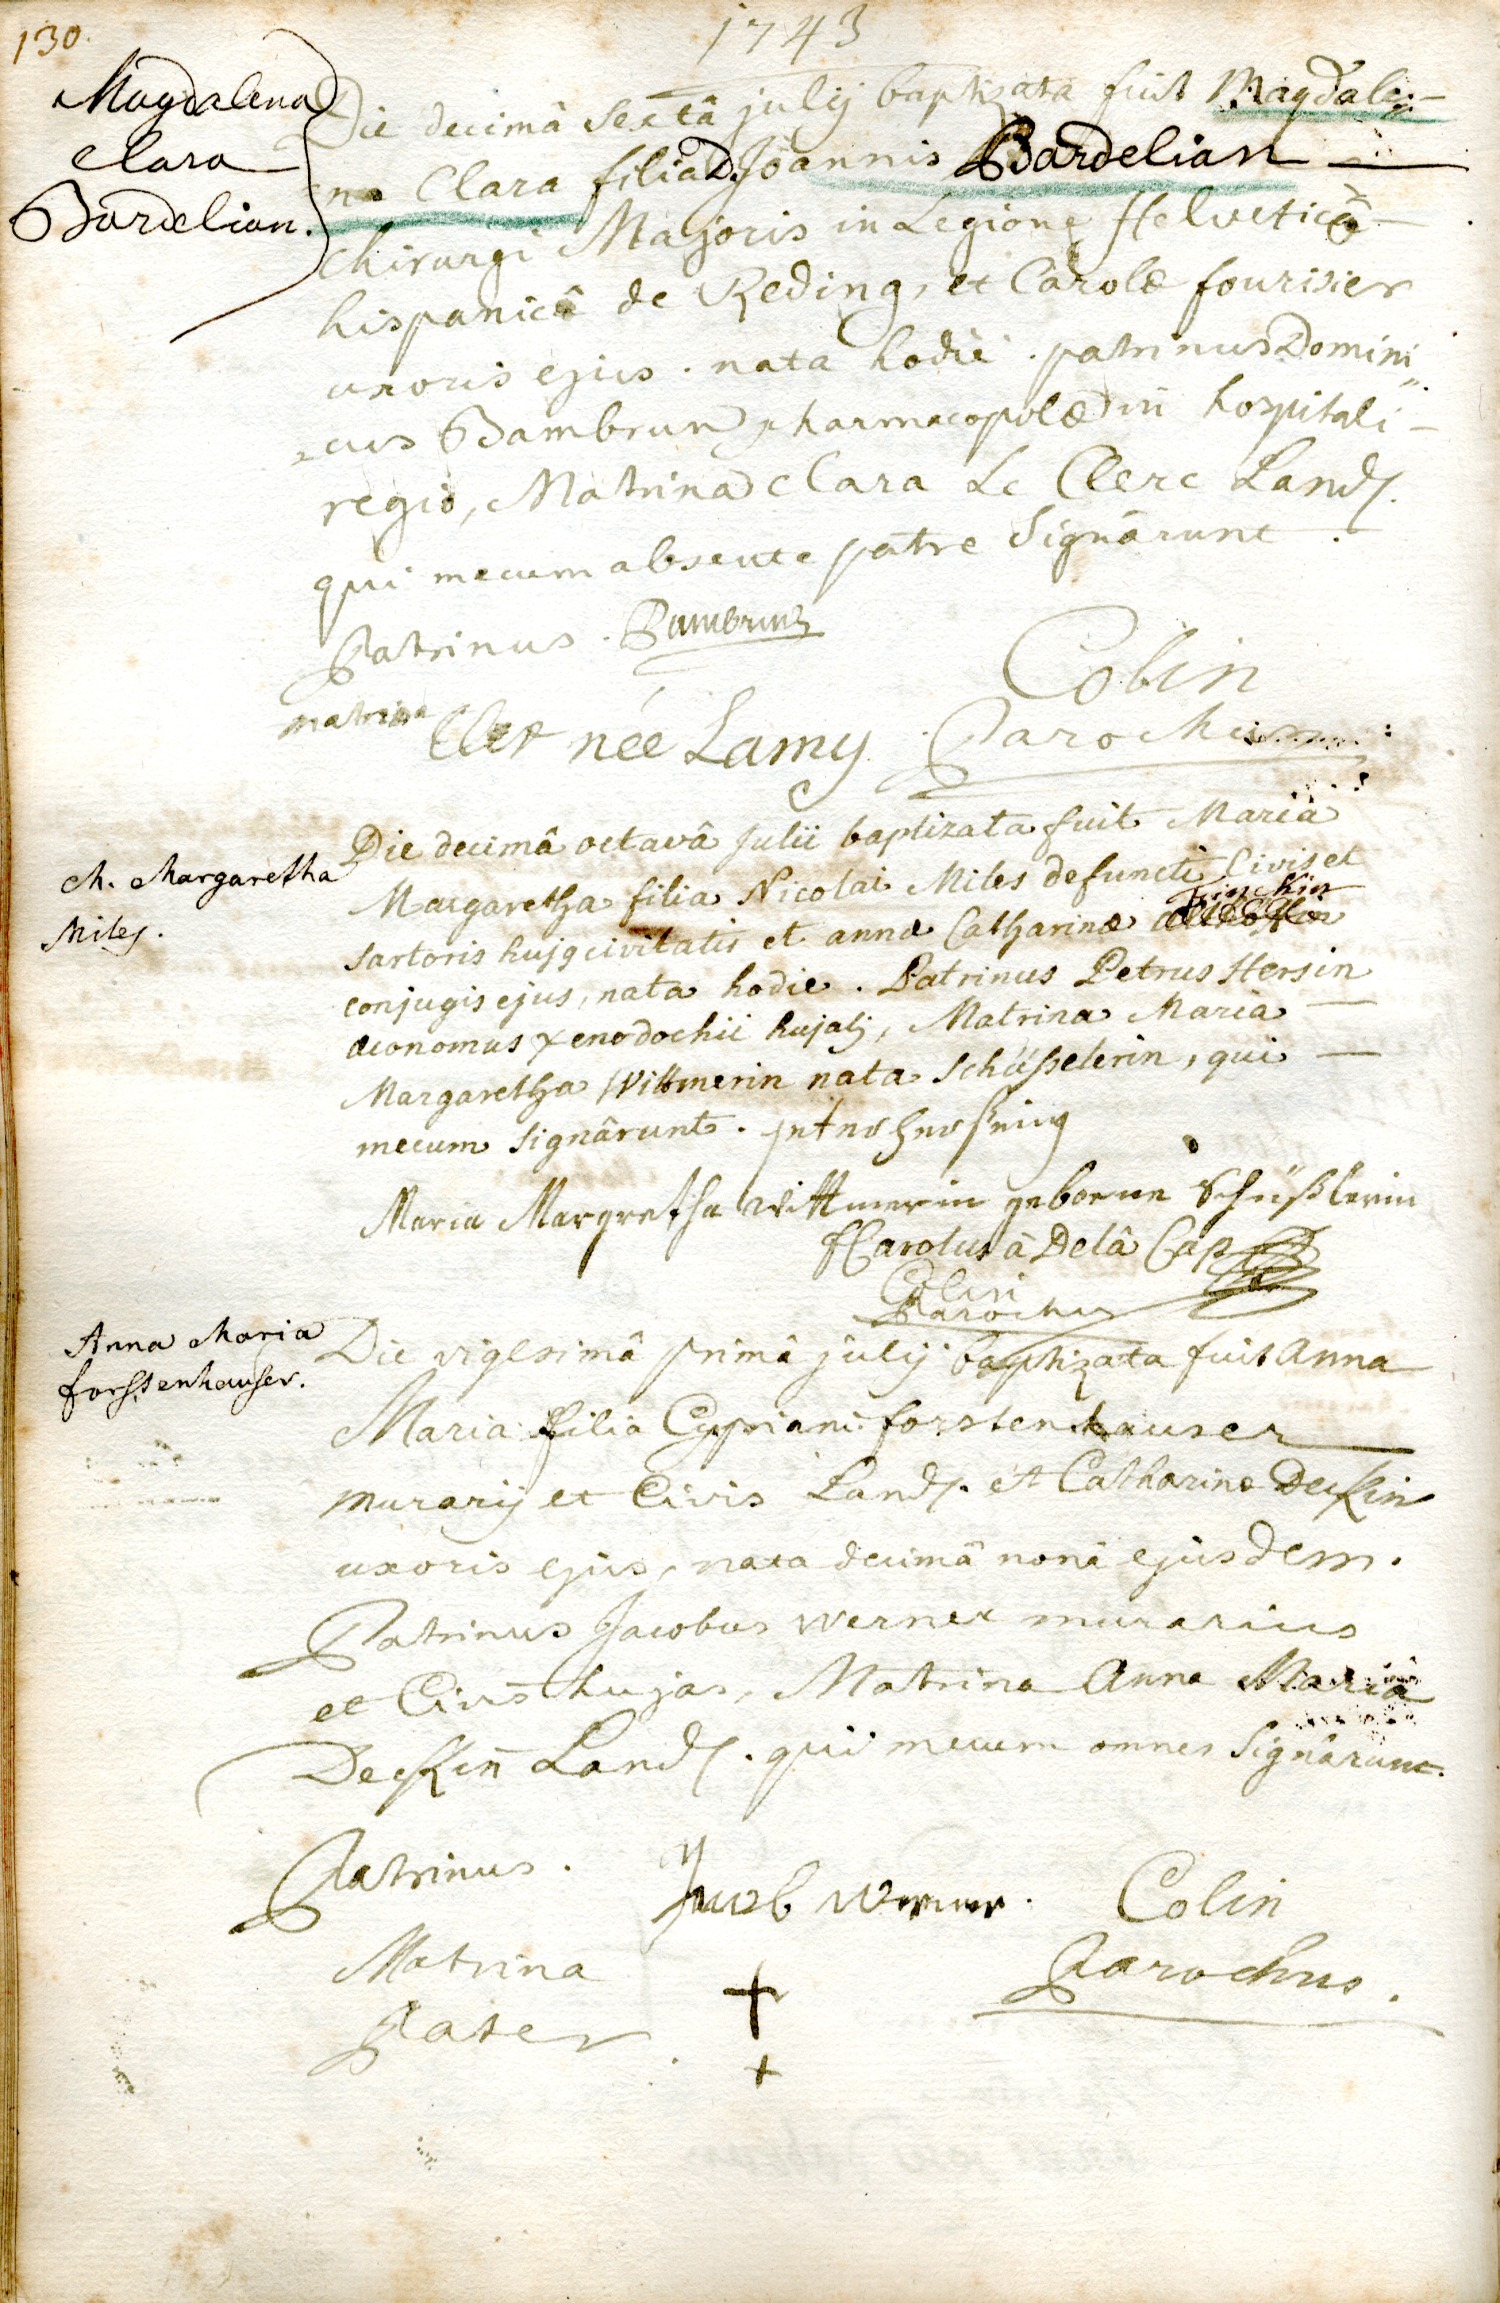 130.
1743
Magdalena
Clara
Bardelian.
Die decimâ sextâ julij baptizata fuit Magdale-
na Clara filia D. Joannis Bardelian
Chirurgi Majoris in Legione Helveticâ
hispanicâ de Reding, et Carolæ fourisier
uxoris ejus. nata hodie. patrinus Domini
cus Bambrun pharmacopolæ in hospitali
regio, Matrina Clara Le Clerc Land.
qui mecum absente patre Signârunt.
Patrinus. Bambrun
Colin
matrina Cler née Lamy Parochus
M. Margaretha
Miles.
Die decimâ octavâ Julii baptizata fuit Maria
Margaretha filia Nicolai Miles defuncti Civis et
Sartoris hujg civitatis et annæ Catharinæ
conjugis ejus, nata hodie. Patrinus Petrus Hersin
œconomus xenodochii hujatj, Matrina Maria
Margaretha Wittmerin nata Schüßelerin, qui
mecum Signârunt.
Maria Margretha Wittmerin geborne Schüßlerin
f Carolus à Delâ Cap
Colin
Parochus
Anna Maria
forstenhauser.
Die vigesimâ primâ julij baptizata fuit Anna
Maria filia Cypriani forstenhauser
murarij et Civis Land. et Catharinæ Deckin
uxoris ejus, nata decimâ nonâ ejusdem.
Patrinus Jacobus Werner murarius
et Civis hujas, Matrina Anna Maria
Deckin Land. qui mecum omnes Signârunt.
Patrinus. Jacob Werner. Colin
Matrina + Parochus.
Pater +